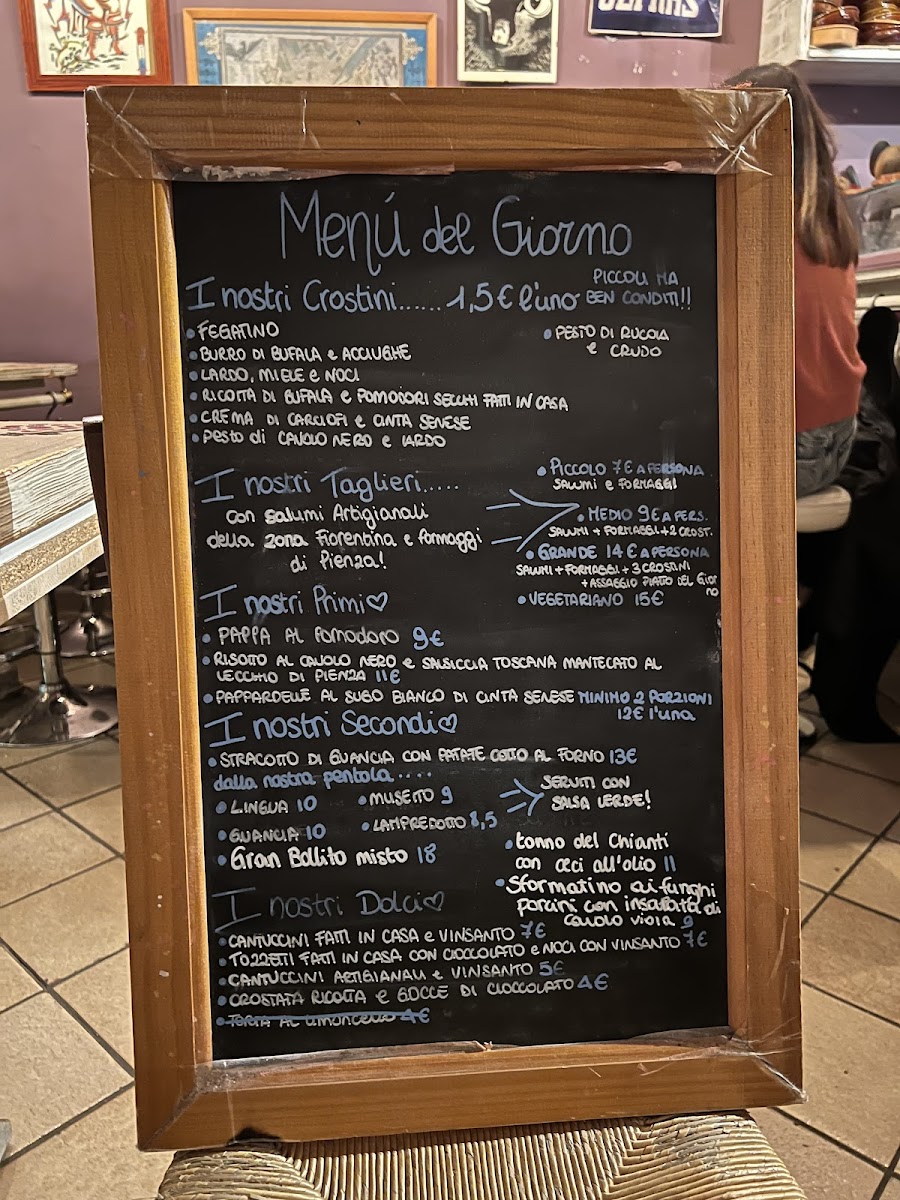 Menú del Giorno
I nostri Crostini...... 1,5€ l'uno
PICCOLI MA
BEN CONDITI!!
• FEGATINO
• BURRO DI BUFALA e ACCIUGHE
• LARDO, MIELE e NOCI
• RICOTTA DI BUFALA e POMODORI SECCHI FATTI IN CASA
• CREMA DI CARCIOFI e CINTA SENESE
• Pesto di CAVOLO NERO e LARDO
• PESTO DI RUCOLA
e CRUDO
I nostri Taglieri.....
con salumi Artigianali
della zona Fiorentina e formaggi
di Pienza!
• PICCOLO 7€ A PERSONA
SALUMI e FORMAGGI
• MEDIO 9€ A PERS.
SALUMI + FORMAGGI + 2 CROST.
• GRANDE 14€ A PERSONA
SALUMI + FORMAGGI + 3 CROSTINI
+ ASSAGGIO PIATTO DEL Gior
no
• VEGETARIANO 15€
I nostri Primi♡
• PAPPA AL POMODORO 9€
• RISOTTO AL CAVOLO NERO e SALSICCIA TOSCANA MANTECATO AL
VECCHIO DI PIENZA 11€
• PAPPARDELLE AL SUGO BIANCO DI CINTA SENESE MINIMO 2 PORZIONI
12€ l'una
I nostri Secondi♡
• STRACOTTO DI GUANCIA CON PATATE COTTO AL FORNO 13€
dalla nostra pentola....
• LINGUA 10
• MUSETTO 9
• GUANCIA 10
• LAMPREDOTTO 8,5
• Gran Bollito misto 18
SERVITI CON
SALSA VERDE!
• tonno del Chianti
con ceci all'olio 11
• Sformatino ai funghi
porcini con insalata di
cavolo viola 9
I nostri Dolci♡
• CANTUCCINI FATTI IN CASA e VINSANTO 7€
• TOZZETTI FATTI IN CASA CON CIOCCOLATO e NOCI CON VINSANTO 7€
• CANTUCCINI ARTIGIANALI e VINSANTO 5€
• CROSTATA RICOTTA e GOCCE DI CIOCCOLATO 4€
• TORTA AL LIMONCELLO 4€